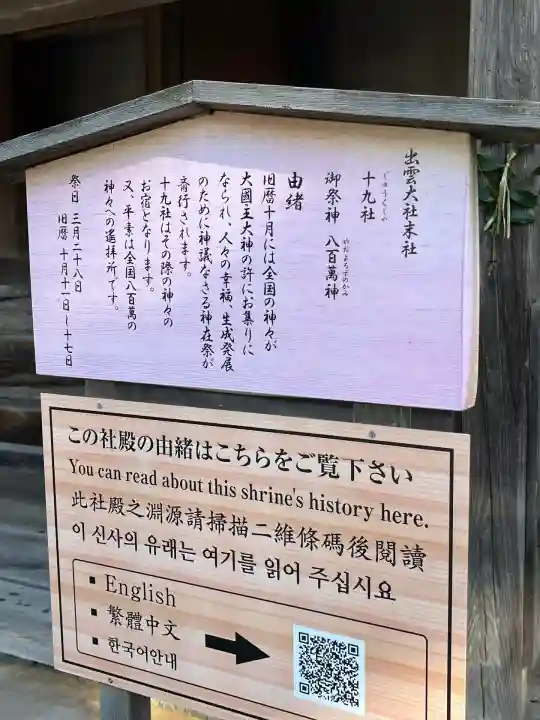 出雲大社末社
じゅうくしゃ
十九社
御祭神 八百萬神
やおよろずのかみ
由緒
旧暦十月には全国の神々が
大國主大神の許にお集りに
なられ、人々の幸福、生成発展
のために神議なさる神在祭が
斎行されます。
十九社はその際の神々の
お宿となります。
又、平素は全国八百萬の
神々への遥拝所です。
祭日 三月二十八日
旧暦 十月十一日~十七日
この社殿の由緒はこちらをご覧下さい
You can read about this shrine's history here.
此社殿之淵源請掃描二維條碼後閱讀
이 신사의 유래는 여기를 읽어 주십시요
▪ English
▪ 繁體中文
▪ 한국어안내